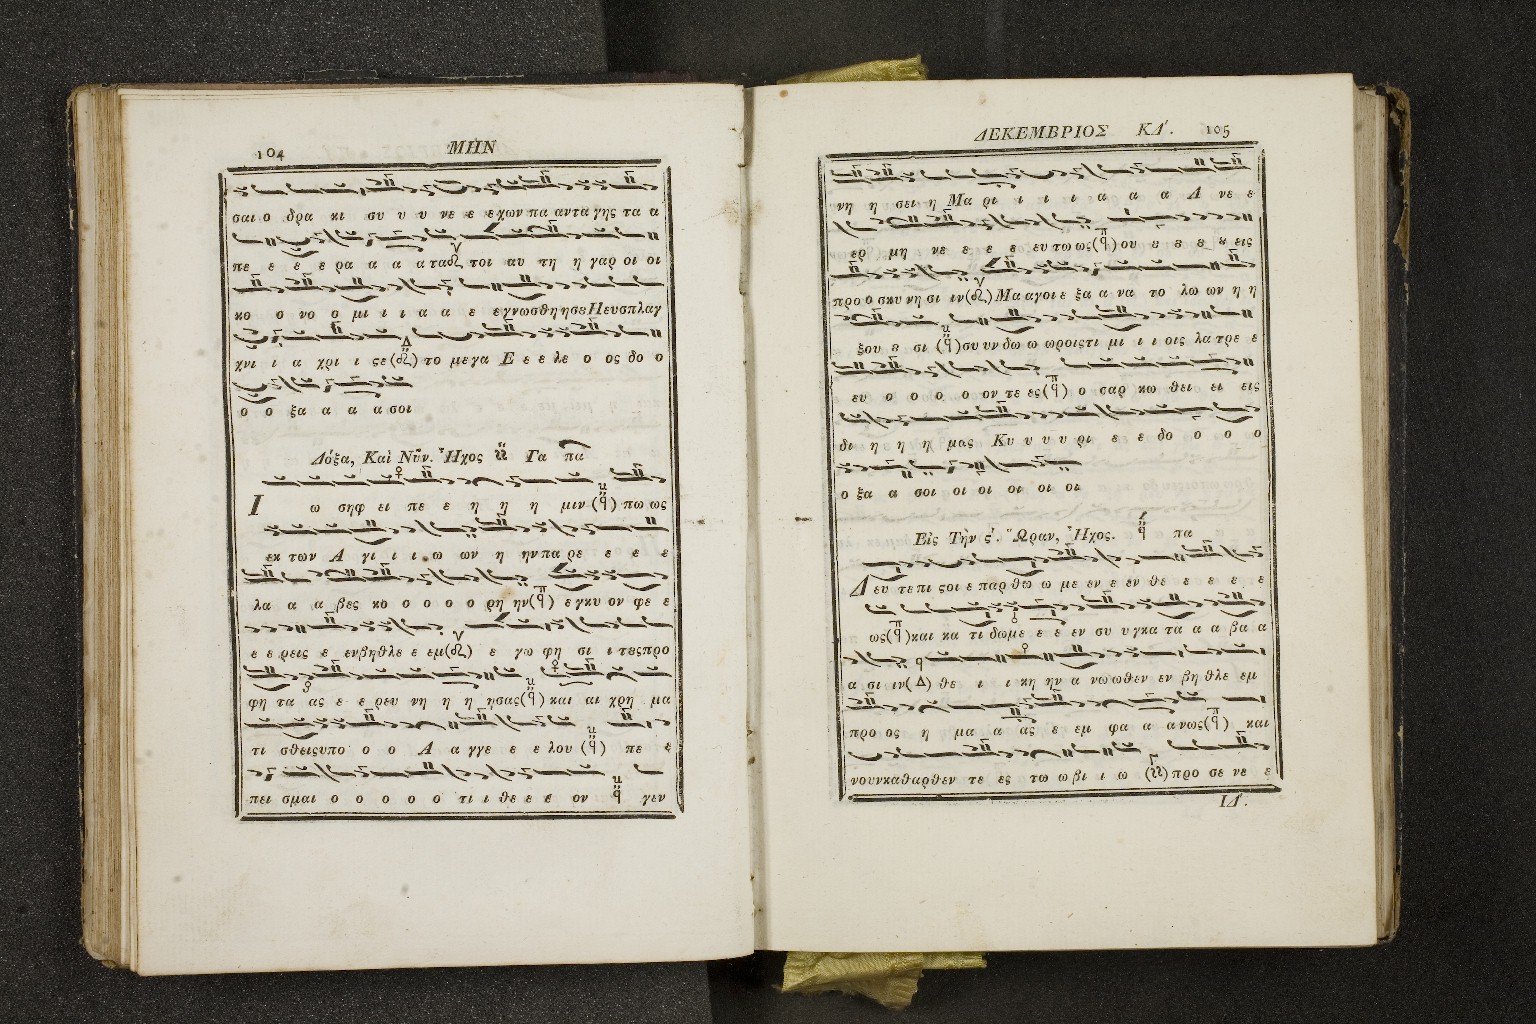 104 ΜΗΝ
σαι ο δρα κι συ υ υ νε ε εχων πα αντα γης τα α
πε ε ε ε ρα α α α τα τοι αυ τη η γαρ οι οι
κο ο νο ο μι ι ι α α ε εγνωσθη ησε Η ευσπλαγ
χνι ι α χρι ι ςε ( ) το μεγα Ε ε ε λε ο ος δο ο
ο ο ξα α α α σοι
Δόξα, Καὶ Νῦν. Ἦχος Γα πα
Ι ω σηφ ει πε ε η η η μιν ( ) πω ως
εκ των Α γι ι ι ω ων η ην πα ρε ε ε ε
λα α α βες κο ο ο ο ο ρη ην ( ) ε γκυ ον φε ε
ε ε ρεις ε ενβηθλε ε εμ ( ) ε γω φη σι ι τες προ
φη τα ας ε ε ρευ νη η η ησας ( ) και αι χρη μα
τι σθεις υπο ο ο Α α γγε ε ε λου ( ) πε ε
πει σμαι ο ο ο ο ο τι ι θε ε ε ον γεν
ΔΕΚΕΜΒΡΙΟΣ ΚΔ΄. 105
νη η σει η Μα ρι ι ι ι α α α Α νε ε
ερ μη νε ε ε ε ευ τω ως ( ) ου ε ε ε κ εις
προ ο σκυ νη σι ιν ( ) Μα αγοι ε ξα α να το λω ων η η
ξου ε σι ( ) συ υν δω ω ωροις τι μι ι ι οις λα τρε ε
ευ ο ο ο ο ον τε ες ( ) ο σαρ κω θει ει εις
δι η η η μας Κυ υ υ υ ρι ε ε δο ο ο ο
ο ξα α σοι οι οι οι οι οι
Εἰς Τὴν ς΄. Ὥραν, Ἦχος. πα
Δ ευ τε πι ςοι ε παρ θω ω με εν ε εν θε ε ε ε ε
ως ( ) και κα τι δωμε ε ε εν συ υ γκα τα α α βα α
α σι ιν (Δ) θε ι ι κη ην α νω ωθεν εν βη θλε εμ
προ ος η μα α ας ε εμ φα α α νως ( ) και
νουν καθαρθεν τε ες τω ω βι ι ω ( ) προ σε νε ε
ΙΔ΄.